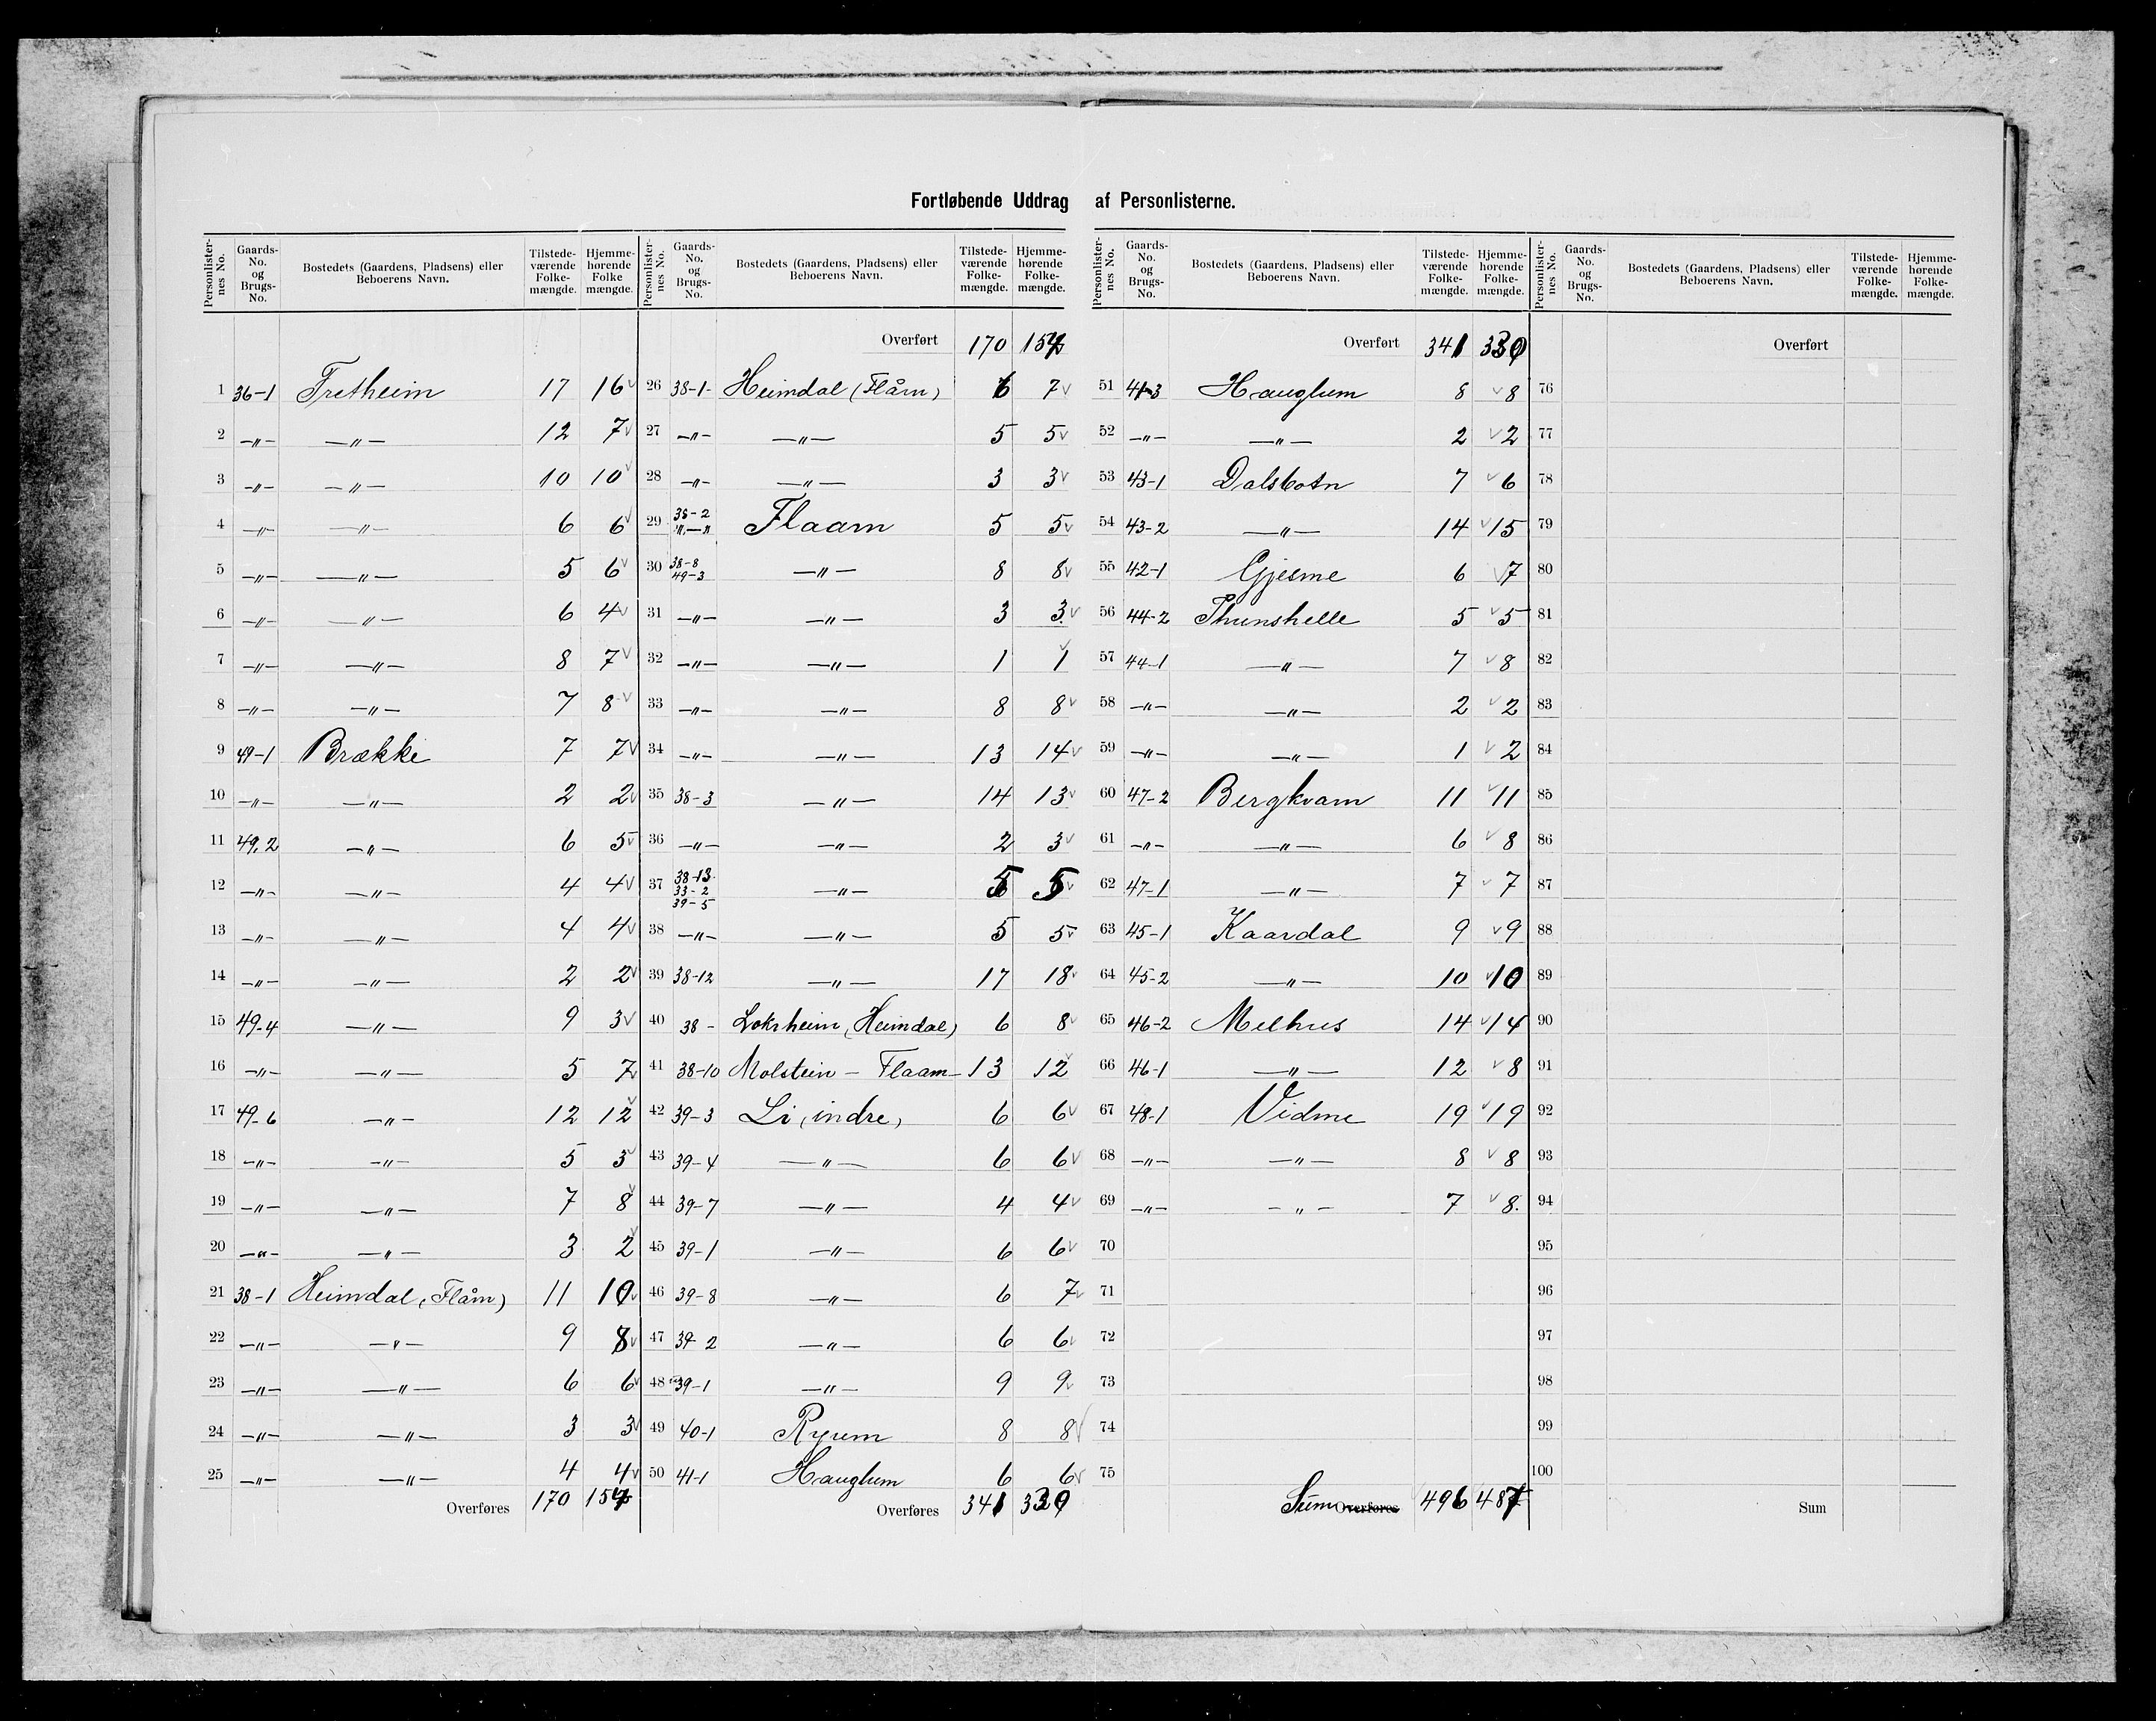 Fortløbende Uddrag af Personlisterne.
Personlisternes No. | Gaards-No. og Brugs-No. | Bostedets (Gaardens, Pladsens) eller Beboerens Navn. | Tilstedeværende Folkemængde. | Hjemmehørende Folkemængde.
1 36-1 Fretheim 17 16
2 -„- -„- 12 7
3 -„- -„- 10 10
4 -„- -„- 6 6
5 -„- -„- 5 6
6 -„- -„- 6 4
7 -„- -„- 8 7
8 -„- -„- 7 8
9 49-1 Brække 7 7
10 -„- -„- 2 2
11 49.2 -„- 6 5
12 -„- -„- 4 4
13 -„- -„- 4 4
14 -„- -„- 2 2
15 49-4 -„- 9 3
16 -„- -„- 5 7
17 49-6 -„- 12 12
18 -„- -„- 5 3
19 -„- -„- 7 8
20 -„- -„- 3 2
21 38-1 Heimdal (Flåm) 11 10
22 -„- -„- 9 8
23 -„- -„- 6 6
24 -„- -„- 3 3
25 -„- -„- 4 4
Overføres 170 154
Personlisternes No. | Gaards-No. og Brugs-No. | Bostedets (Gaardens, Pladsens) eller Beboerens Navn. | Tilstedeværende Folkemængde. | Hjemmehørende Folkemængde.
Overført 170 154
26 38-1- Heimdal (Flåm) 6 7
27 -„- -„- 5 5
28 -„- -„- 3 3
29 38-2 „-„ Flaam 5 5
30 38-8 49-3 -„- 8 8
31 -„- -„- 3 3
32 -„- -„- 1 1
33 -„- -„- 8 8
34 -„- -„- 13 14
35 38-3 -„- 14 13
36 -„- -„- 2 3
37 38-13 33-2 39-5 -„- 5 5
38 -„- -„- 5 5
39 38-12 -„- 17 18
40 38- Lokrheim (Heimdal) 6 8
41 38-10 Molstein - Flaam- 13 12
42 39-3 Li (indre) 6 6
43 39-4 -„- 6 6
44 39-7 -„- 4 4
45 39-1 -„- 6 6
46 39-8 -„- 6 7
47 39-2 -„- 6 6
48 39-1 -„- 9 9
49 40-1 Ryum 8 8
50 41-1 Hauglum 6 6
Overføres 341 330
Personlisternes No. | Gaards-No. og Brugs-No. | Bostedets (Gaardens, Pladsens) eller Beboerens Navn. | Tilstedeværende Folkemængde. | Hjemmehørende Folkemængde.
Overført 341 330
51 41-3 Hauglum 8 8
52 -„- -„- 2 2
53 43-1 Dalsbotn 7 6
54 43-2 -„- 14 15
55 42-1 Gjesme 6 7
56 44-2 Thunshelle 5 5
57 44-1 -„- 7 8
58 -„- -„- 2 2
59 -„- -„- 1 2
60 47-2 Bergkvam 11 11
61 -„- -„- 6 8
62 47-1 -„- 7 7
63 45-1 Kaardal 9 9
64 45-2 -„- 10 10
65 46-2 Melhus 14 14
66 46-1 -„- 12 8
67 48-1 Vidme 19 19
68 -„- -„- 8 8
69 -„- -„- 7 8.
70
71
72
73
74
75
Sum Overføres 496 487
Personlisternes No. | Gaards-No. og Brugs-No. | Bostedets (Gaardens, Pladsens) eller Beboerens Navn. | Tilstedeværende Folkemængde. | Hjemmehørende Folkemængde.
Overført
76
77
78
79
80
81
82
83
84
85
86
87
88
89
90
91
92
93
94
95
96
97
98
99
100
Sum